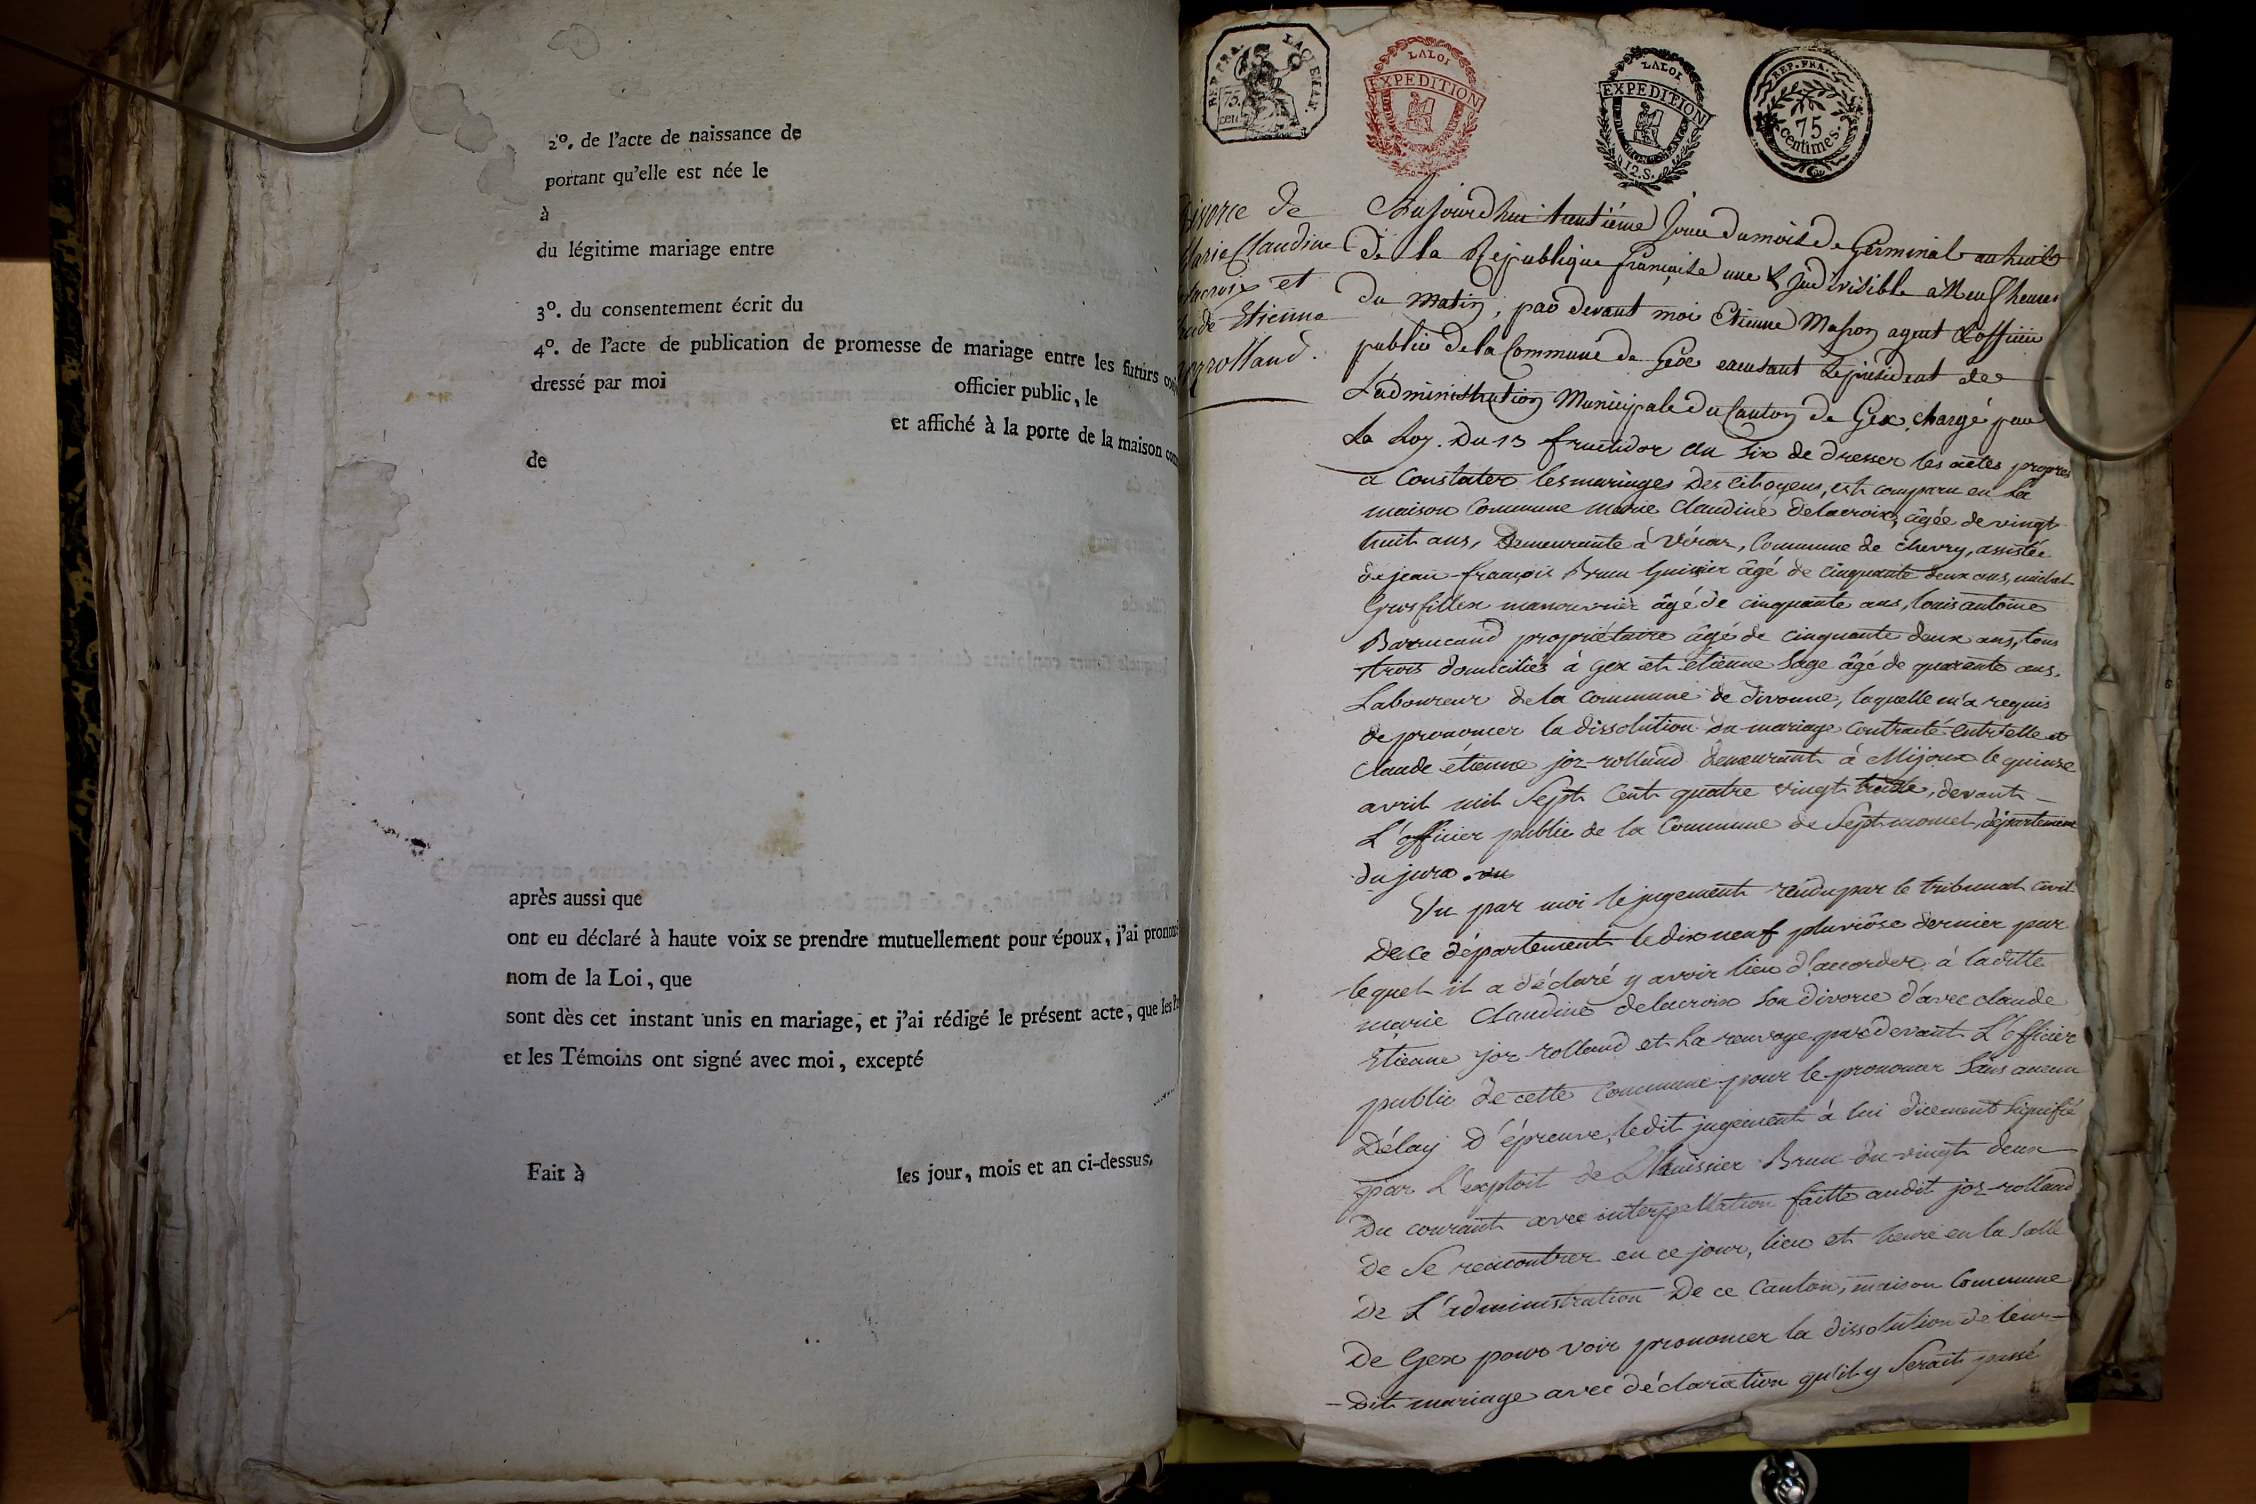 2°. de l'acte de naissance de
portant qu'elle est née le
à
du légitime mariage entre
3°. du consentement écrit du
4°. de l'acte de publication de promesse de mariage entre les futurs
dressé par moi officier public, le
et affiché à la porte de la maison
de
après aussi que
ont eu déclaré à haute voix se prendre mutuellement pour époux, j'ai
nom de la Loi, que
sont dès cet instant unis en mariage, et j'ai rédigé le présent acte, que les
et les Témoins ont signé avec moi, excepté
Fait à les jour, mois et an ci-dessus.
REP. FRA.
75. cen.
LA LOI
EXPEDITION
LA LOI
EXPEDITION
12. S.
REP. FRA.
75
centimes.
divorce de
Marie Claudine
delacroix et
Claude Etienne
joz rolland.
Aujourdhui trentième Jour du mois de Germinal an huit
de la République française une & Indivisible à Neuf heures
du matin, par devant moi Etienne Masson agent & officier
public de la Commune de Gex excusant le président de
L'administration Municipale du Canton de Gex, chargé par
La Loy. Du 13 fructidor an Six de dresser les actes propres
a Constater les mariages Des Citoyens, est comparu en La
maison Commune marie Claudine delacroix, âgée de vingt
huit ans, Demeurante à Véraz, Commune de chevry, assistée
de jean-françois Brun huissier âgé de cinquante deux ans, michel
Grosfillex manouvrier âgé de cinquante ans, louis antoine
Barrucand propriétaire âgé de cinquante deux ans, tous
trois domiciliés à Gex et étienne Sage âgé de quarante ans,
Laboureur de la commune de divonne, laquelle m'a requis
de prononcer la dissolution du mariage contracté entr'elle et
Claude étienne joz-rolland demeurant à Mijoux le quinze
avril mil Sept Cent quatre vingt treize, devant
L'officier public de la Commune de Septmoncel, département
du jura. vu
Vu par moi le jugement rendu par le tribunal civil
De ce département le dix neuf pluviôse dernier par
lequel il a déclaré y avoir lieu d'accorder à laditte
marie Claudine delacroix Son divorce d'avec claude
Etienne joz-rolland et La renvoye pardevant L'officier
public de cette Commune pour le prononcer Sans aucun
Délay D'épreuve, ledit jugement à lui duement Signifié
par L'exploit de L'huissier Brun du vingt deux
Du courant avec interpellation faitte audit joz-rolland
de Se rencontrer en ce jour, lieu et heure en la Salle
De L'administration De ce Canton, maison Commune
De Gex pour voir prononcer la dissolution de leur
Dit mariage avec déclaration qu'il y Serait passé